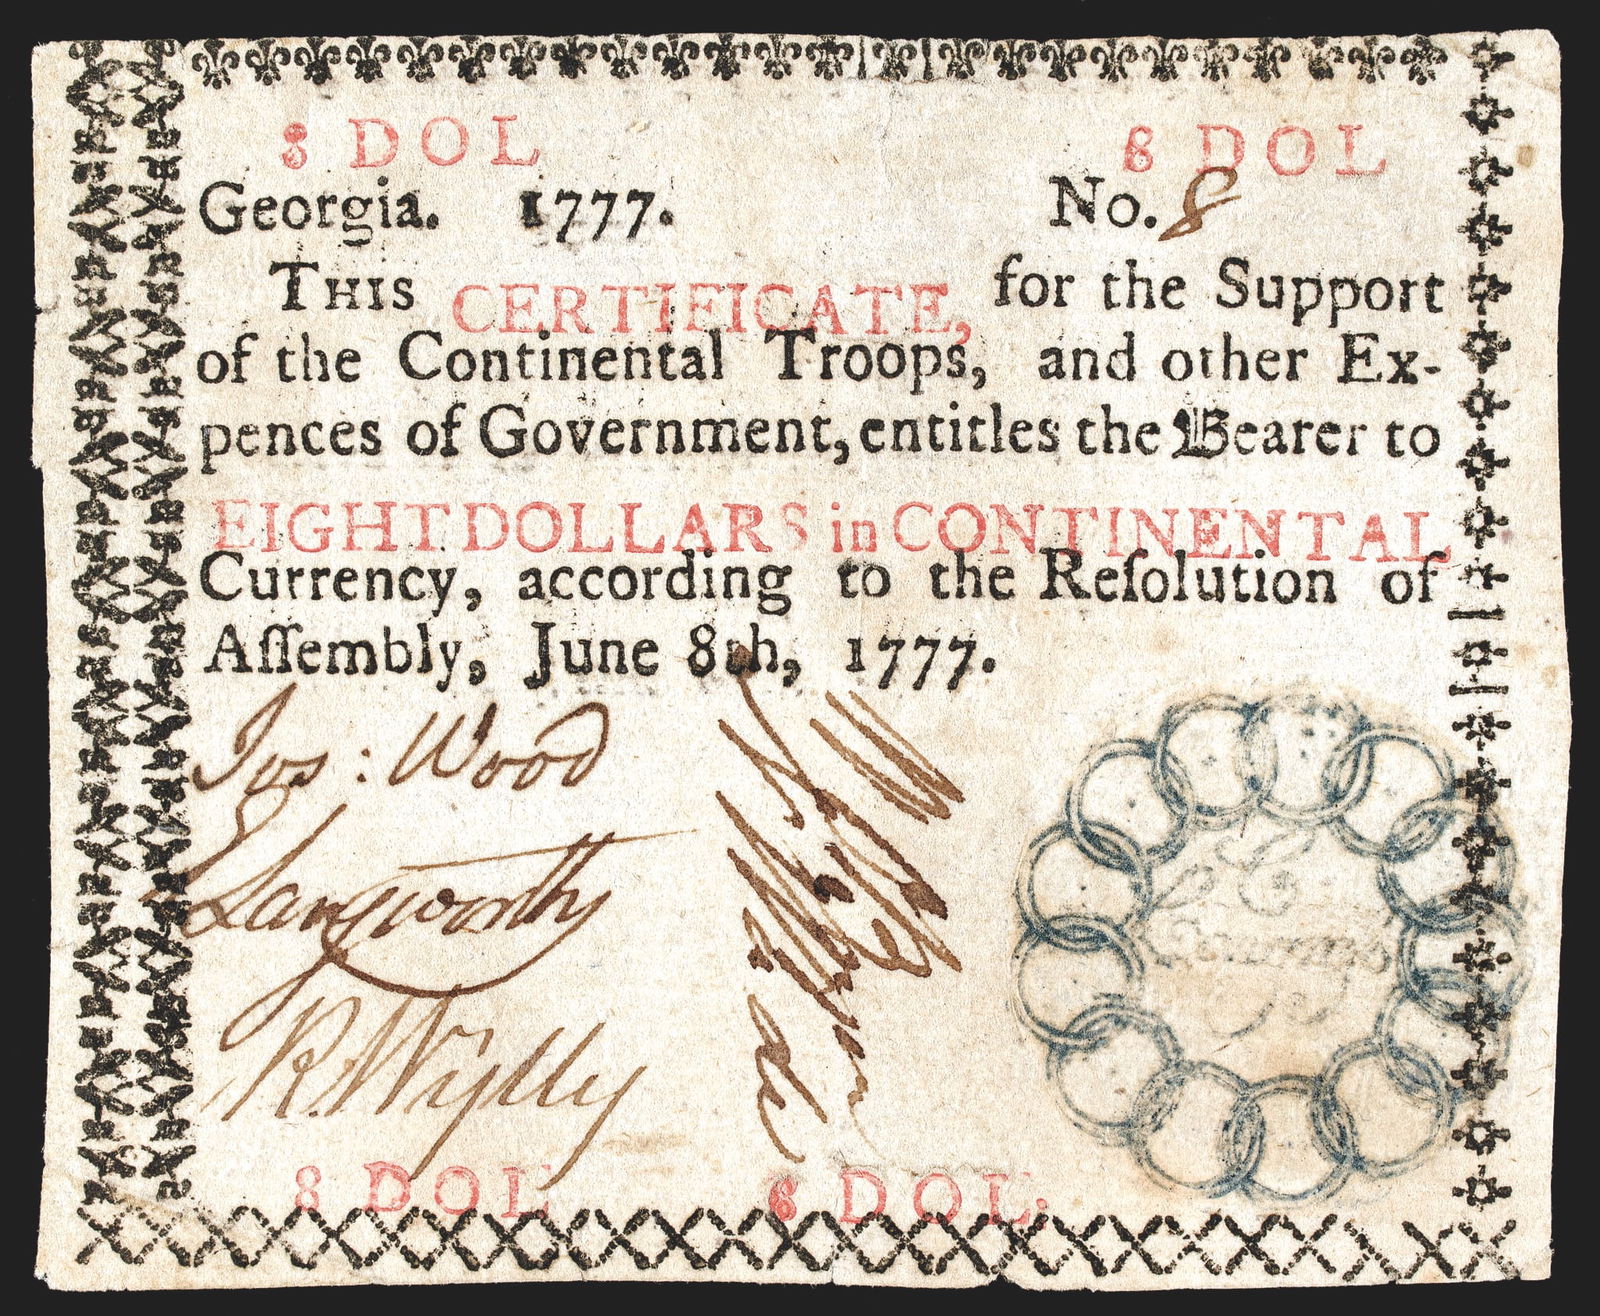 8 DOL 8 DOL
Georgia. 1777. No. 8
THIS CERTIFICATE, for the Support
of the Continental Troops, and other Ex-
pences of Government, entitles the Bearer to
EIGHT DOLLARS in CONTINENTAL
Currency, according to the Reſolution of
Aſſembly, June 8th, 1777.
Jos: Wood
Langworthy
R. Wylly
8 DOL 8 DOL.